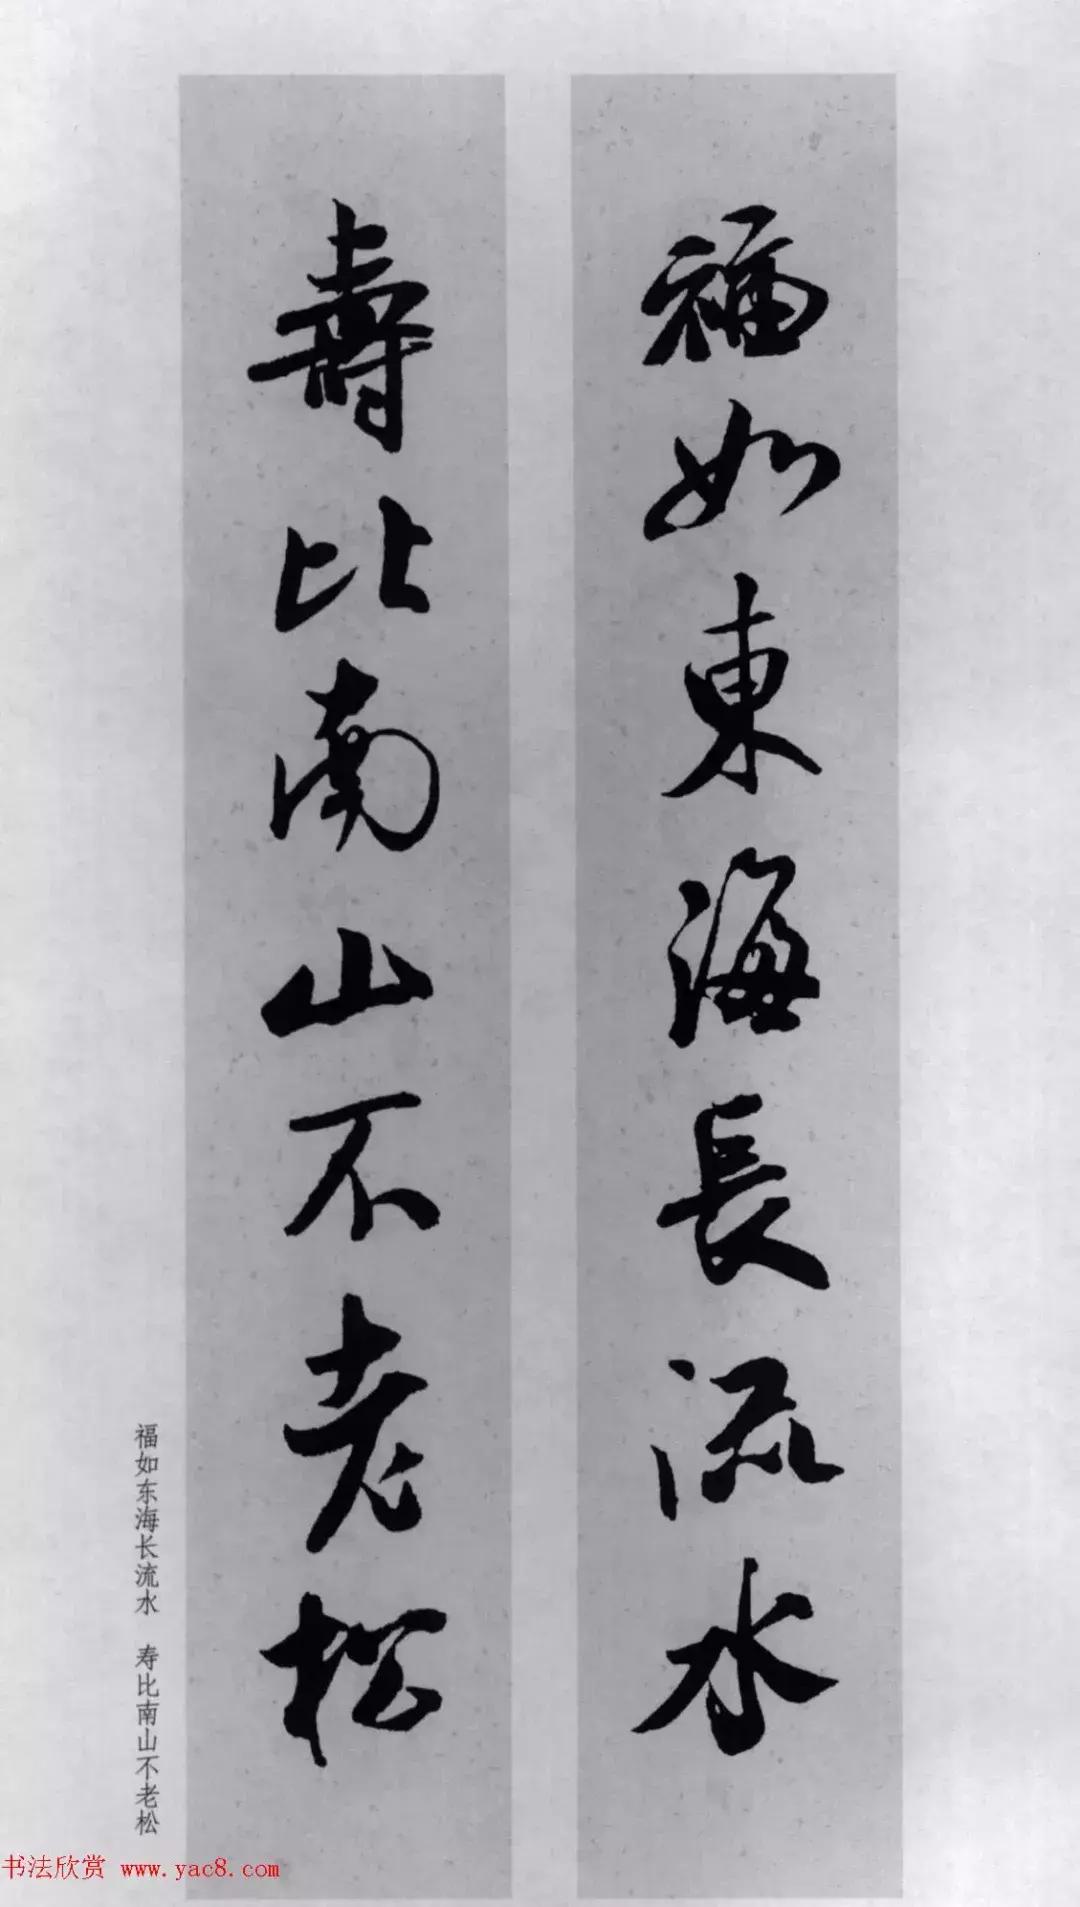 福如東海長流水
壽比南山不老松
福如东海长流水 寿比南山不老松
书法欣赏 www.yac8.com